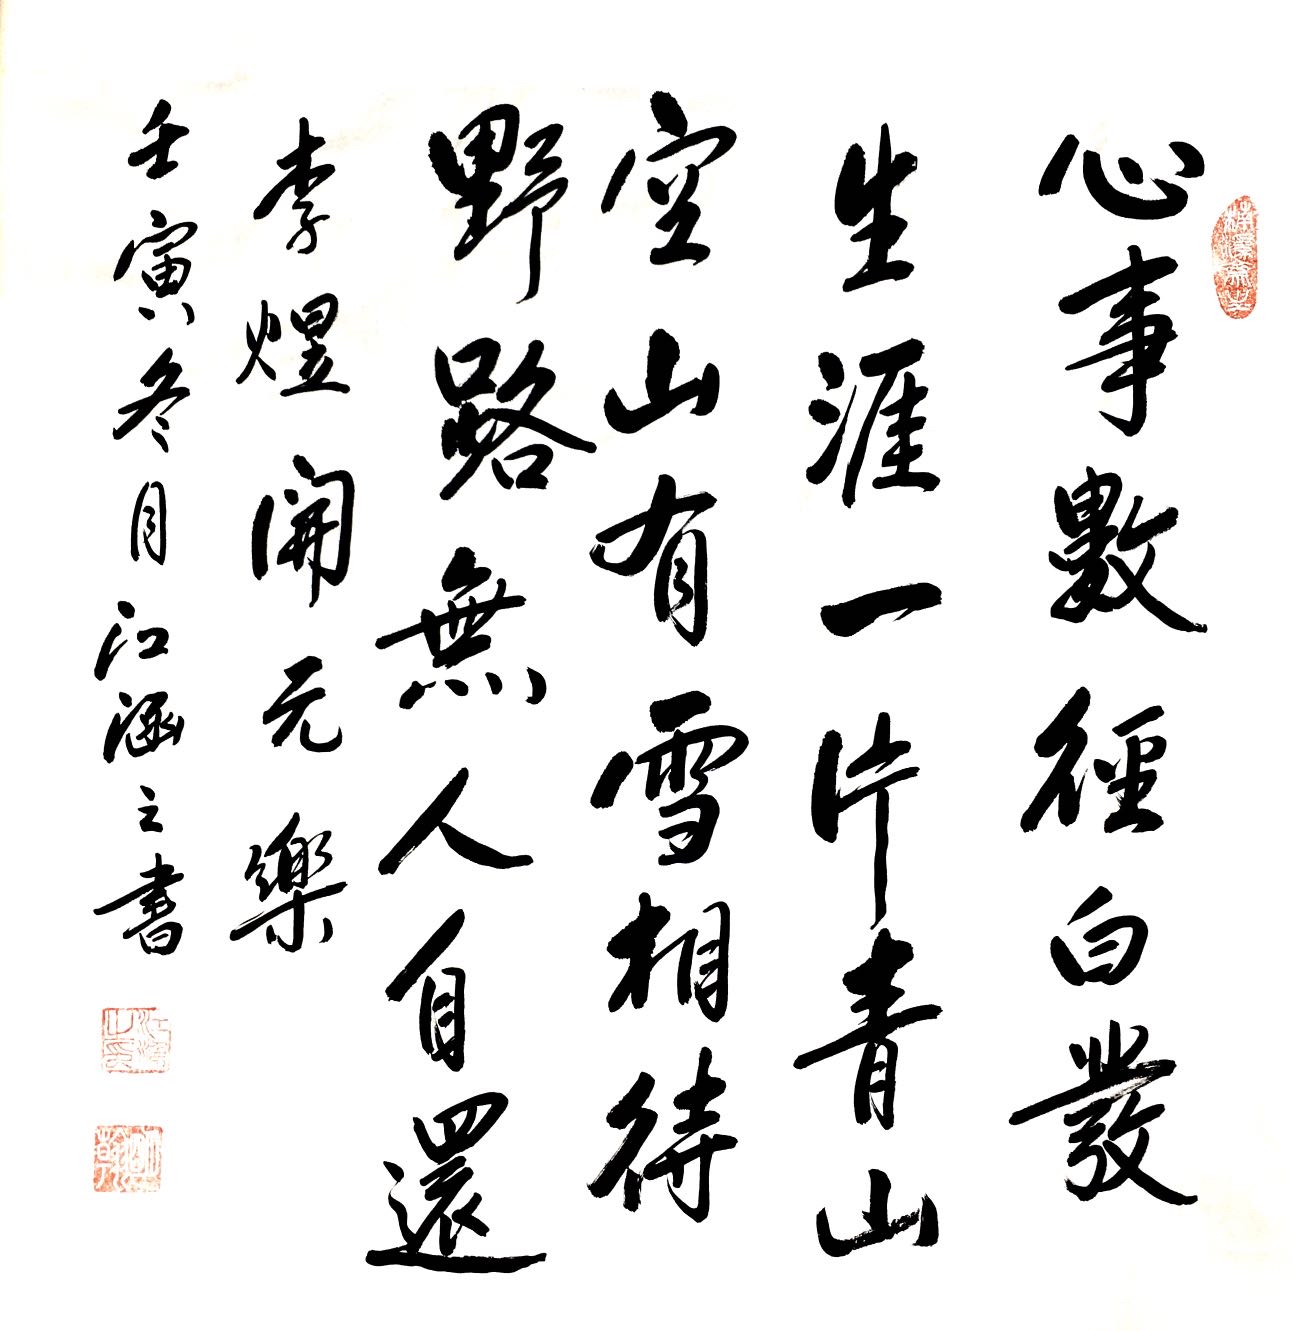 心事數徑白發
生涯一片青山
空山有雪相待
野路無人自還
李煜開元樂
壬寅冬月江涵之書